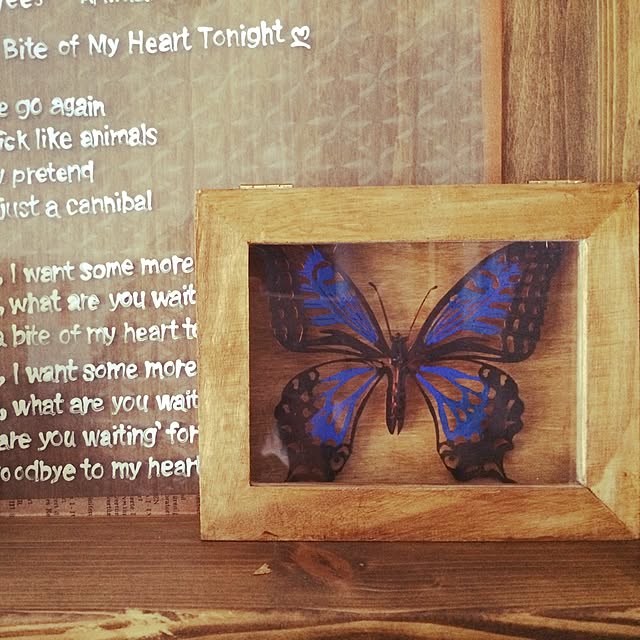 Bite of My Heart Tonight
go again
like animals
pretend
just a cannibal
, I want some more
, what are you wait
a bite of my heart to
, I want some more
, what are you wait
are you waiting' for
oodbye to my heart